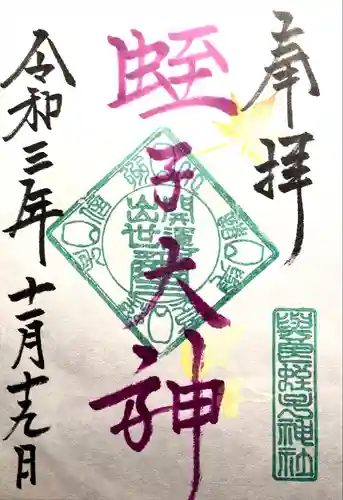 奉拝
蛭子大神
令和三年
十一月十九日
開運
出世